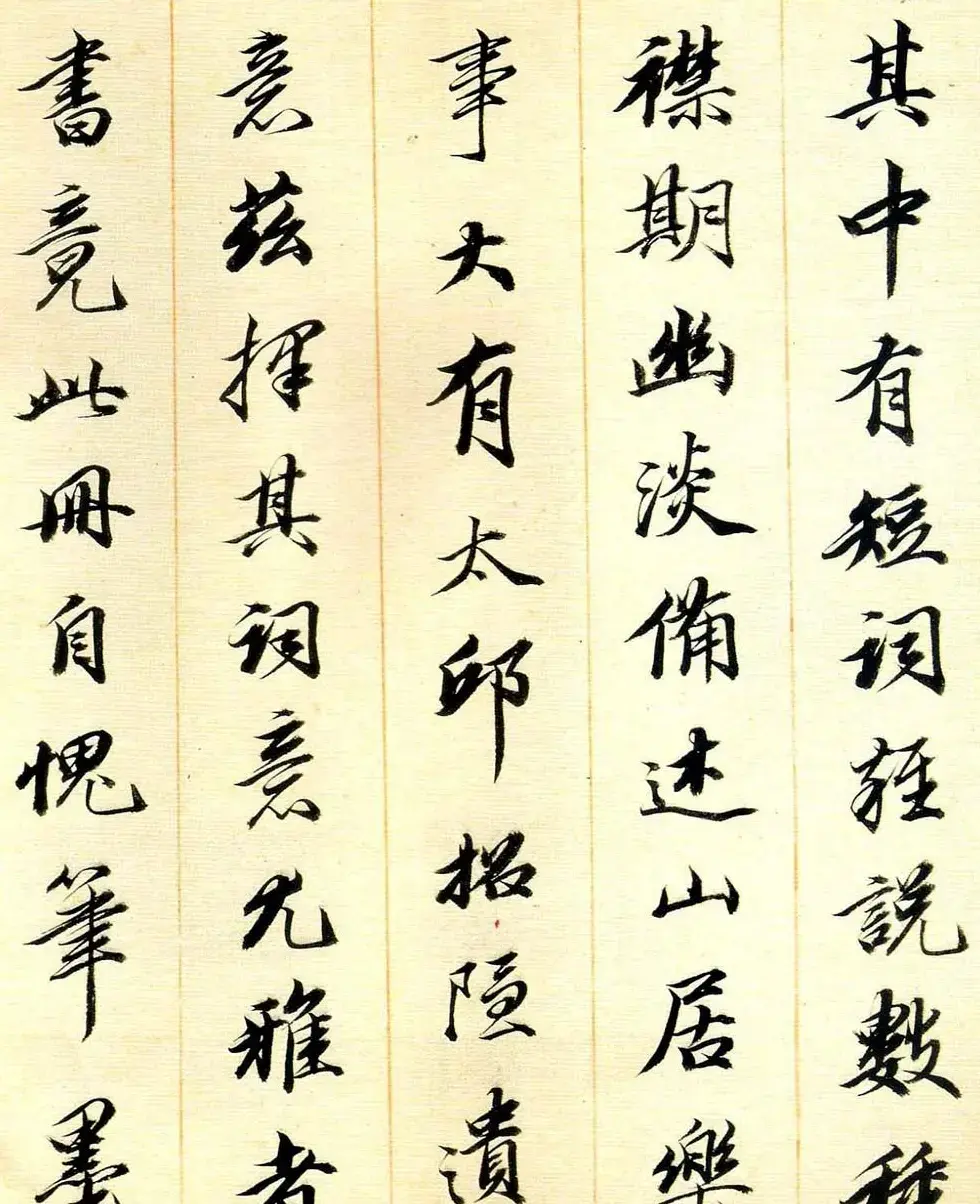 其中有短词雜説數種
襟期幽淡備述山居樂
事大有太邱招隱遺
意茲擇其词意尤雅者
書竟此冊自愧筆墨